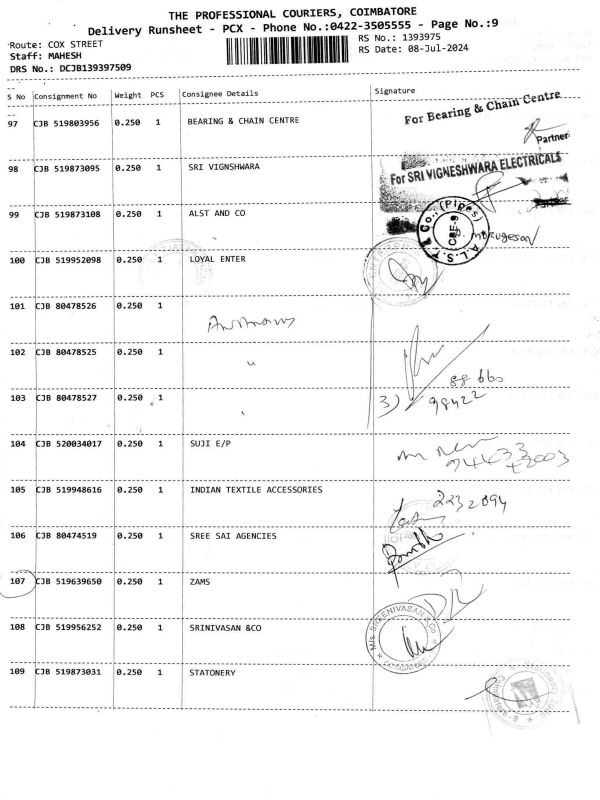 THE PROFESSIONAL COURIERS, COIMBATORE
Delivery Runsheet - PCX - Phone No.:0422-3505555 - Page No.:9
Route: COX STREET
RS No.: 1393975
Staff: MAHESH
RS Date: 08-Jul-2024
DRS No.: DCJB139397509
S No Consignment No Weight PCS Consignee Details Signature
97 CJB 519803956 0.250 1 BEARING & CHAIN CENTRE
For Bearing & Chain Centre
Partner
98 CJB 519873095 0.250 1 SRI VIGNSHWARA
For SRI VIGNESHWARA ELECTRICALS
99 CJB 519873108 0.250 1 ALST AND CO
A.L.S.T. & Co., (Pipes)
CBE-9
Murugesan
100 CJB 519952098 0.250 1 LOYAL ENTER
101 CJB 80478526 0.250 1
102 CJB 80478525 0.250 1 "
103 CJB 80478527 0.250 1
3) 98422
88 660
104 CJB 520034017 0.250 1 SUJI E/P
94433
105 CJB 519948616 0.250 1 INDIAN TEXTILE ACCESSORIES
2232094
106 CJB 80474519 0.250 1 SREE SAI AGENCIES
107 CJB 519639650 0.250 1 ZAMS
108 CJB 519956252 0.250 1 SRINIVASAN &CO
M/s. SREENIVASAN & Co
COIMBATORE
109 CJB 519873031 0.250 1 STATONERY
Coimbatore-9